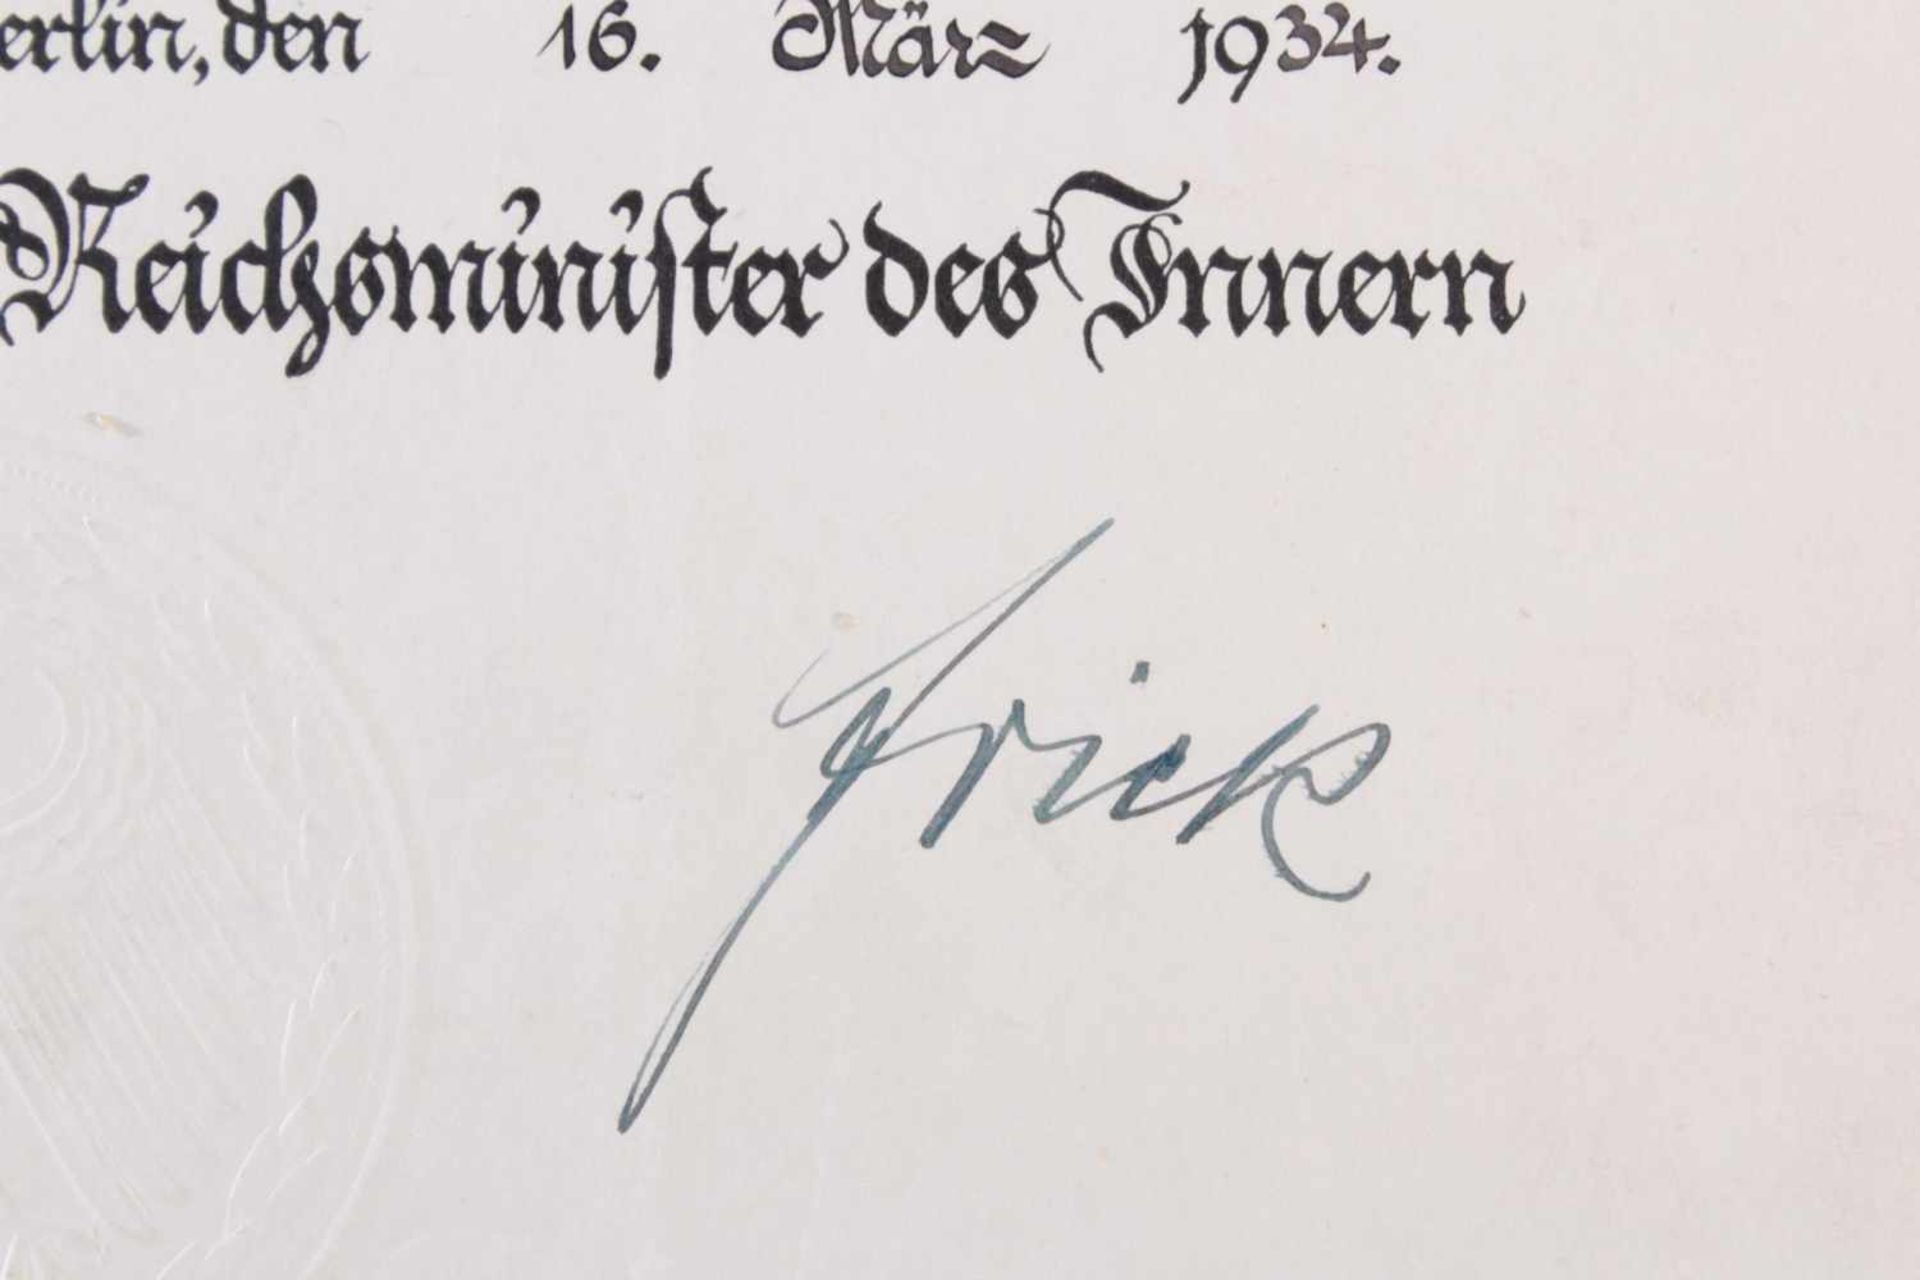 erlin, den 16. März 1934.
Reichsminister des Innern
Frick